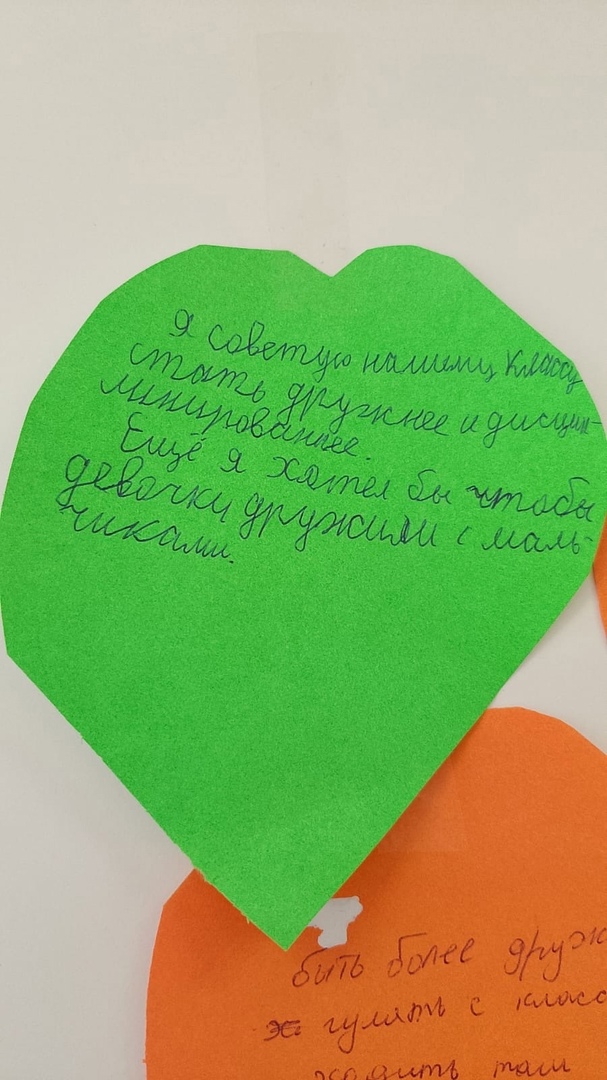 Я советую нашему классу
стать дружнее и дисцип-
линированнее.
Ещё я хотел бы чтобы
девочки дружили с маль-
чиками.
быть более друж
гулять с класс
ходить там